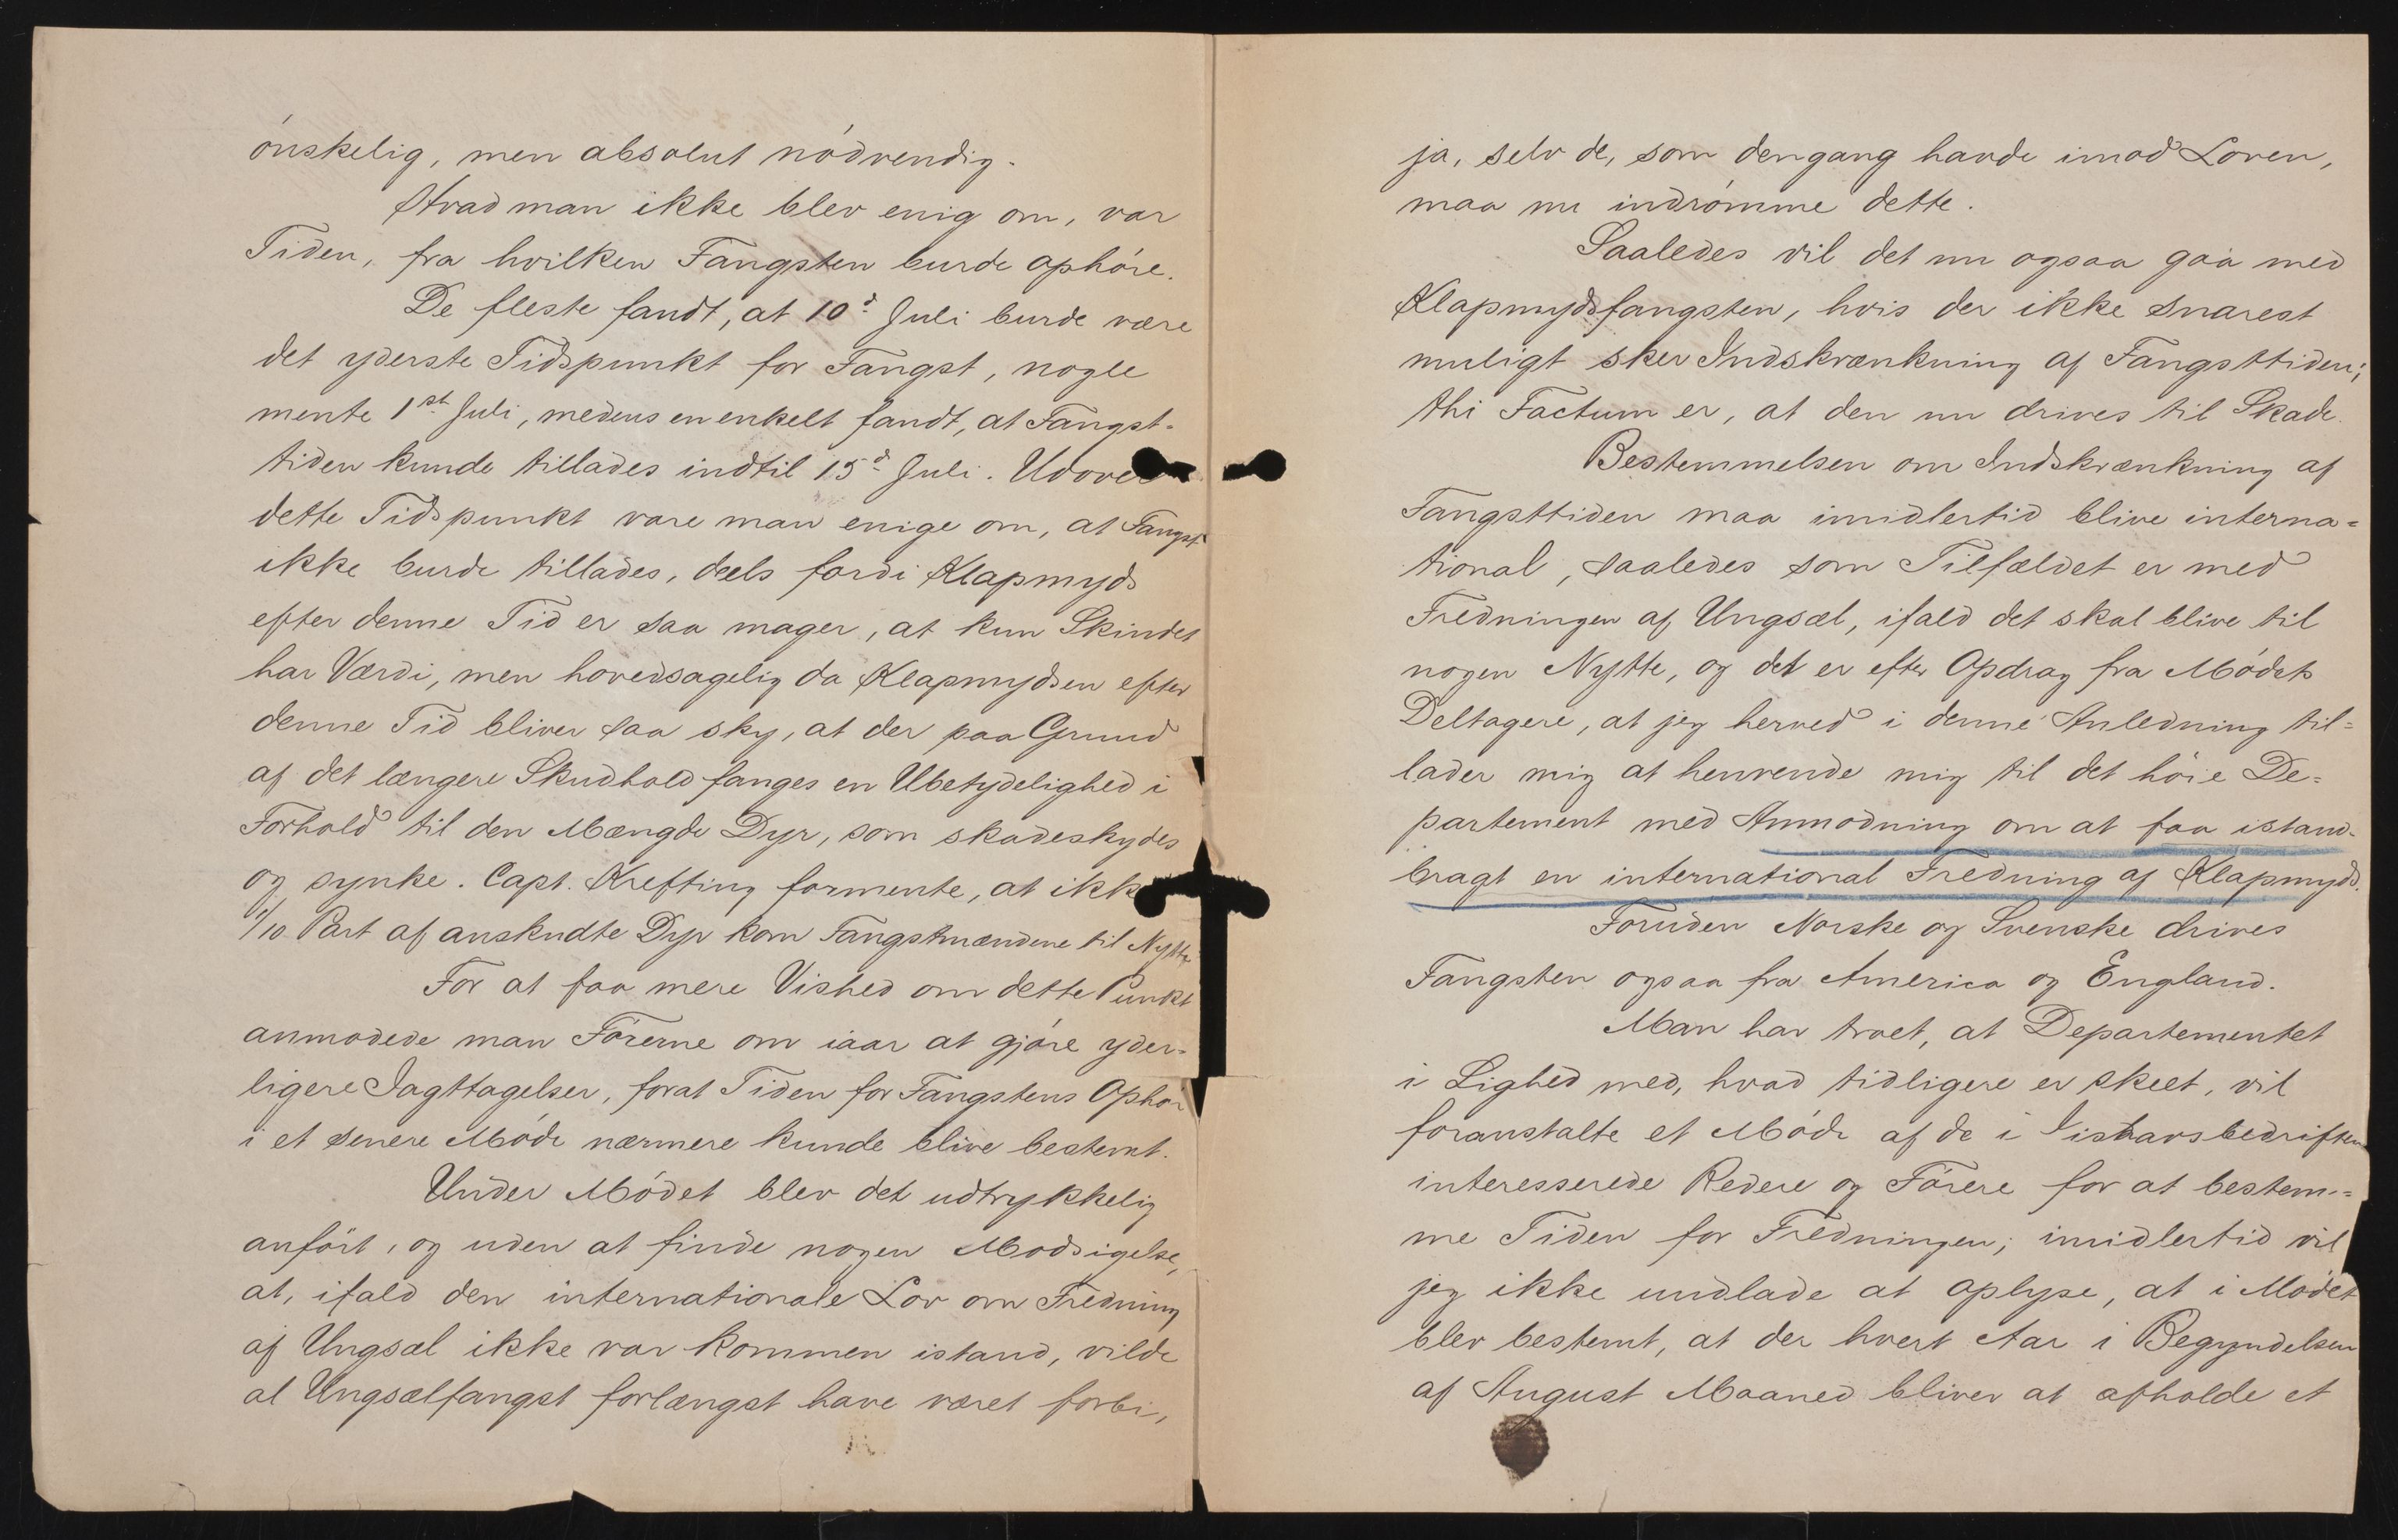 ónskelig, men absolut nódvendig.
Hvad man ikke blev enig om, var
Tiden, fra hvilken Fangsten burde ophóre.
De fleste fandt, at 10d Juli burde være
det yderste Tidspunkt for Fangst, nogle
mente 1st Juli, medens en enkelt fandt, at Fangst-
tiden kunde tillades indtil 15d Juli. Udover
dette Tidspunkt vare man enige om, at Fangst
ikke burde tillades, deels fordi Klapmyds
efter denne Tid er saa mager, at kun Skindet
har Værdi, men hovedsagelig da Klapmydsen efter
denne Tid bliver saa sky, at der paa Grund
af det længere Skudhold fanges en Ubetydelighed i
Forhold til den Mængde Dyr, som skadeskydes
og synke. Capt. Krefting formente, at ikke
1/10 Part af anskudte Dyr kom Fangstmændene til Nytte
For at faa mere Vished om dette Punkt
anmodede man Fórerne om iaar at gjóre yder-
ligere Iagttagelser, forat Tiden for Fangstens Ophór
i et senere Móde nærmere kunde blive bestemt.
Under Módet blev det udtrykkelig
anfórt, og uden at finde nogen Modsigelse,
at, ifald den internationale Lov om Fredning
af Ungsæl ikke var kommen istand, vilde
al Ungsælfangst forlængst have været forbi,
ja, selv de, som dengang havde imod Loven,
maa nu indrómme dette.
Saaledes vil det nu ogsaa gaa med
Klapmydsfangsten, hvis der ikke snarest
muligt sker Indskrænkning af Fangsttiden;
thi Factum er, at den nu drives til Skade.
Bestemmelsen om Indskrænkning af
Fangsttiden maa imidlertid blive interna=
tional, saaledes som Tilfældet er med
Fredningen af Ungsæl, ifald det skal blive til
nogen Nytte, og det er efter Opdrag fra Módets
Deltagere, at jeg herved i denne Anledning til=
lader mig at henvende mig til det hóie De=
partement med Anmodning om at faa istand-
bragt en international Fredning af Klapmyds.
Foruden Norske og Svenske drives
Fangsten ogsaa fra America og England.
Man har troet, at Departementet
i Lighed med, hvad tidligere er skeet, vil
foranstalte et Móde af de i Iishavsbedriften
interesserede Redere og Fórere for at bestem=
me Tiden for Fredningen; imidlertid vil
jeg ikke undlade at oplyse, at i Módet
blev bestemt, at der hvert Aar i Begyndelsen
af August Maaned bliver at afholde et